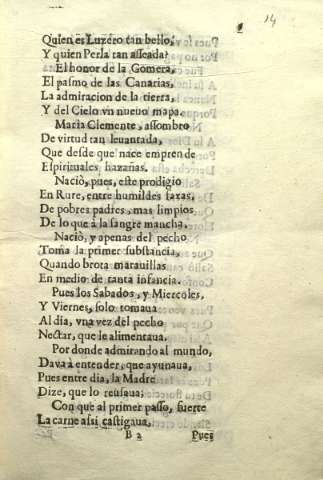 14
Quien es Luzero tan bello,
Y quien Perla tan asseada?
El honor de la Gomera,
El pasmo de las Canarias,
La admiracion de la tierra,
Y del Cielo vn nueuo mapa.
Maria Clemente, assombro
De virtud tan leuantada,
Que desde que nace emprende
Espirituales hazañas.
Naciò, pues, este prodigio
En Rure, entre humildes faxas,
De pobres padres, mas limpios
De lo que á la sangre mancha.
Naciò, y apenas del pecho
Toma la primer substancia,
Quando brota marauillas
En medio de tanta infancia.
Pues los Sabados, y Miercoles,
Y Viernes, solo tomaua
Al dia, vna vez del pecho
Nectar, que le alimentaua.
Por donde admirando al mundo,
Dava à entender, que ayunaua,
Pues entre dia, la Madre
Dize, que lo reusaua;
Con que al primer passo, fuerte
La carne assi castigaua,
B 2 Pues